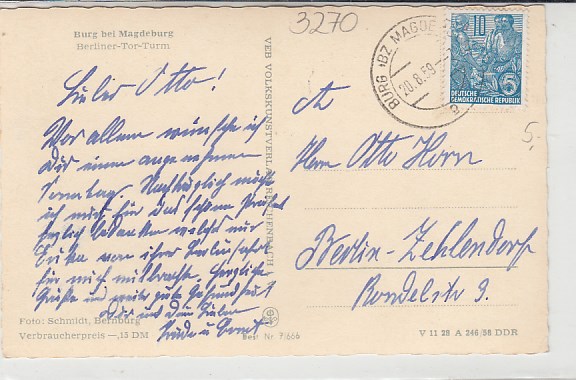 3270
Burg bei Magdeburg
Berliner-Tor-Turm
Lieber Otto!
Vor allem wünsche ich
Dir einen angenehmen
Sonntag. Nachträglich möchte
ich mich für das schöne
herzlich bedanken welches mir
Erika von ihrer Berlinfahrt
für mich mitbrachte. Herzliche
Grüße und weiter gute Gesundheit
Dir und Lieben
u.
Foto: Schmidt, Bernburg
Verbraucherpreis —,15 DM
Best. Nr. 7/666
VEB VOLKSKUNSTVERLAG REICHENBACH
BURG (BZ. MAGDE
20.8.59
a
10
5
DEUTSCHE
DEMOKRATISCHE REPUBLIK
5,-
An
Herrn Otto Horn
Berlin-Zehlendorf
Rondelstr. 9.
V 11 28 A 246/58 DDR